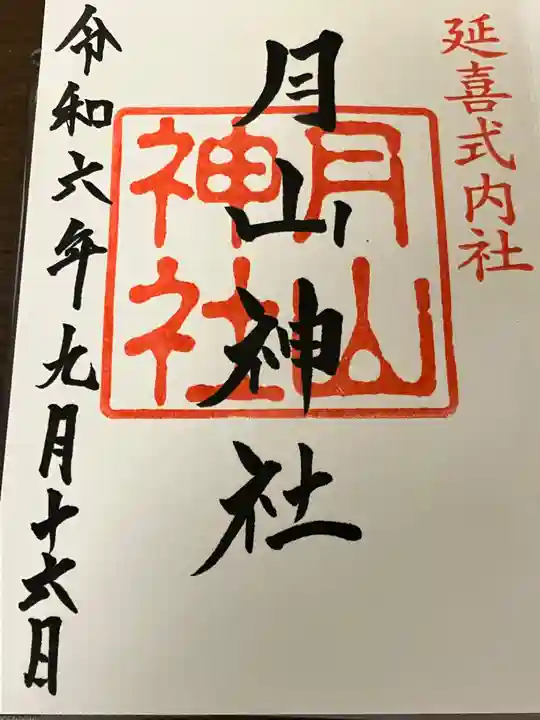 延喜式内社
月山神社
月山神社
令和六年九月十六日